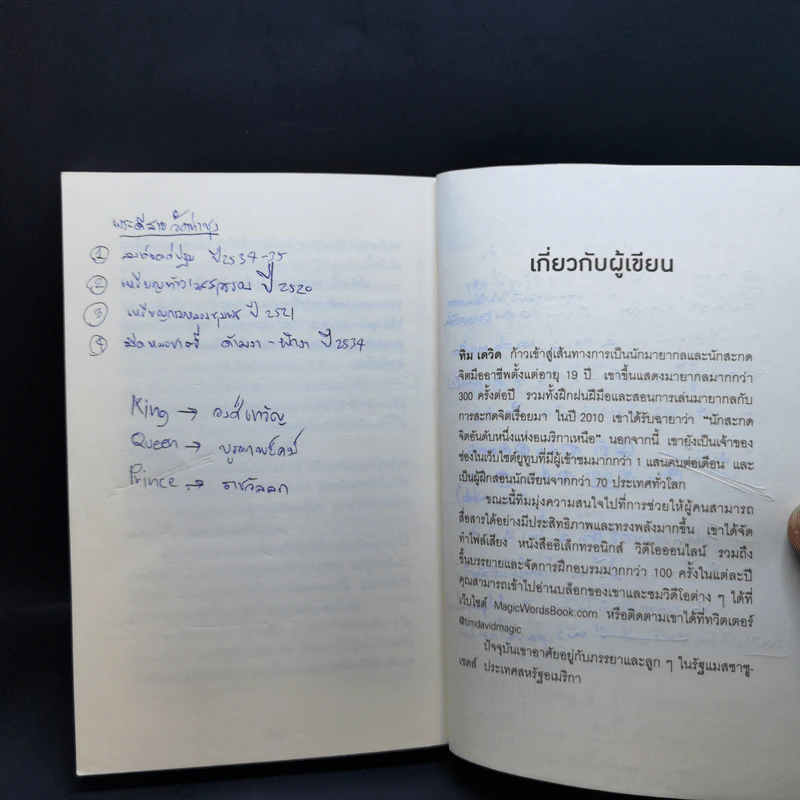 พระดีสายวัดท่าซุง
① องค์ปฐม ปี 2534-35
② เหรียญท้าวเวสสุวรรณ ปี 2520
③ เหรียญกรมหลวงชุมพร ปี 2521
④ มีดหมอชาตรี ด้ามงา - ฝักงา ปี 2534
King → องค์
Queen →
Prince → ราชวัลลภ
เกี่ยวกับผู้เขียน
ทิม เดวิด ก้าวเข้าสู่เส้นทางการเป็นนักมายากลและนักสะกด
จิตมืออาชีพตั้งแต่อายุ 19 ปี เขาขึ้นแสดงมายากลมากกว่า
300 ครั้งต่อปี รวมทั้งฝึกฝนฝีมือและสอนการเล่นมายากลกับ
การสะกดจิตเรื่อยมา ในปี 2010 เขาได้รับฉายาว่า “นักสะกด
จิตอันดับหนึ่งแห่งอเมริกาเหนือ” นอกจากนี้ เขายังเป็นเจ้าของ
ช่องในเว็บไซต์ยูทูบที่มีผู้เข้าชมมากกว่า 1 แสนคนต่อเดือน และ
เป็นผู้ฝึกสอนนักเรียนจากกว่า 70 ประเทศทั่วโลก
ขณะนี้ทิมมุ่งความสนใจไปที่การช่วยให้ผู้คนสามารถ
สื่อสารได้อย่างมีประสิทธิภาพและทรงพลังมากขึ้น เขาได้จัด
ทำไฟล์เสียง หนังสืออิเล็กทรอนิกส์ วิดีโอออนไลน์ รวมถึง
ขึ้นบรรยายและจัดการฝึกอบรมมากกว่า 100 ครั้งในแต่ละปี
คุณสามารถเข้าไปอ่านบล็อกของเขาและชมวิดีโอต่าง ๆ ได้ที่
เว็บไซต์ MagicWordsBook.com หรือติดตามเขาได้ที่ทวิตเตอร์
@timdavidmagic
ปัจจุบันเขาอาศัยอยู่กับภรรยาและลูก ๆ ในรัฐแมสซาชู-
เซตส์ ประเทศสหรัฐอเมริกา